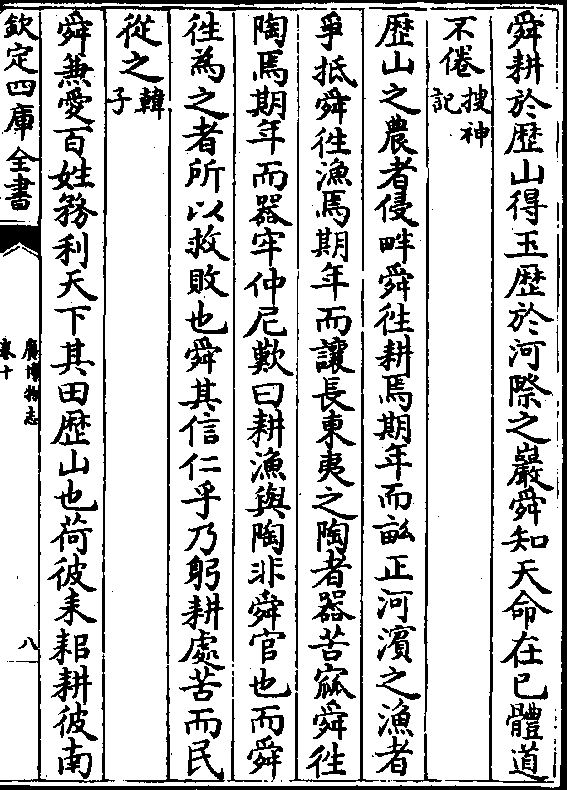 舜耕於歴山得玉歴於河際之巖舜知天命在已體道
不倦搜神記
歴山之農者侵畔舜徃耕焉期年而畝正河濱之漁者
爭抵舜徃漁焉期年而讓長東夷之陶者器苦窳舜徃
陶焉期年而器牢仲尼歎曰耕漁與陶非舜官也而舜
徃為之者所以救敗也舜其信仁乎乃躬耕處苦而民
從之韓子
舜兼愛百姓務利天下其田歴山也荷彼耒耜耕彼南
欽定四庫全書
廣博物志
卷十
八